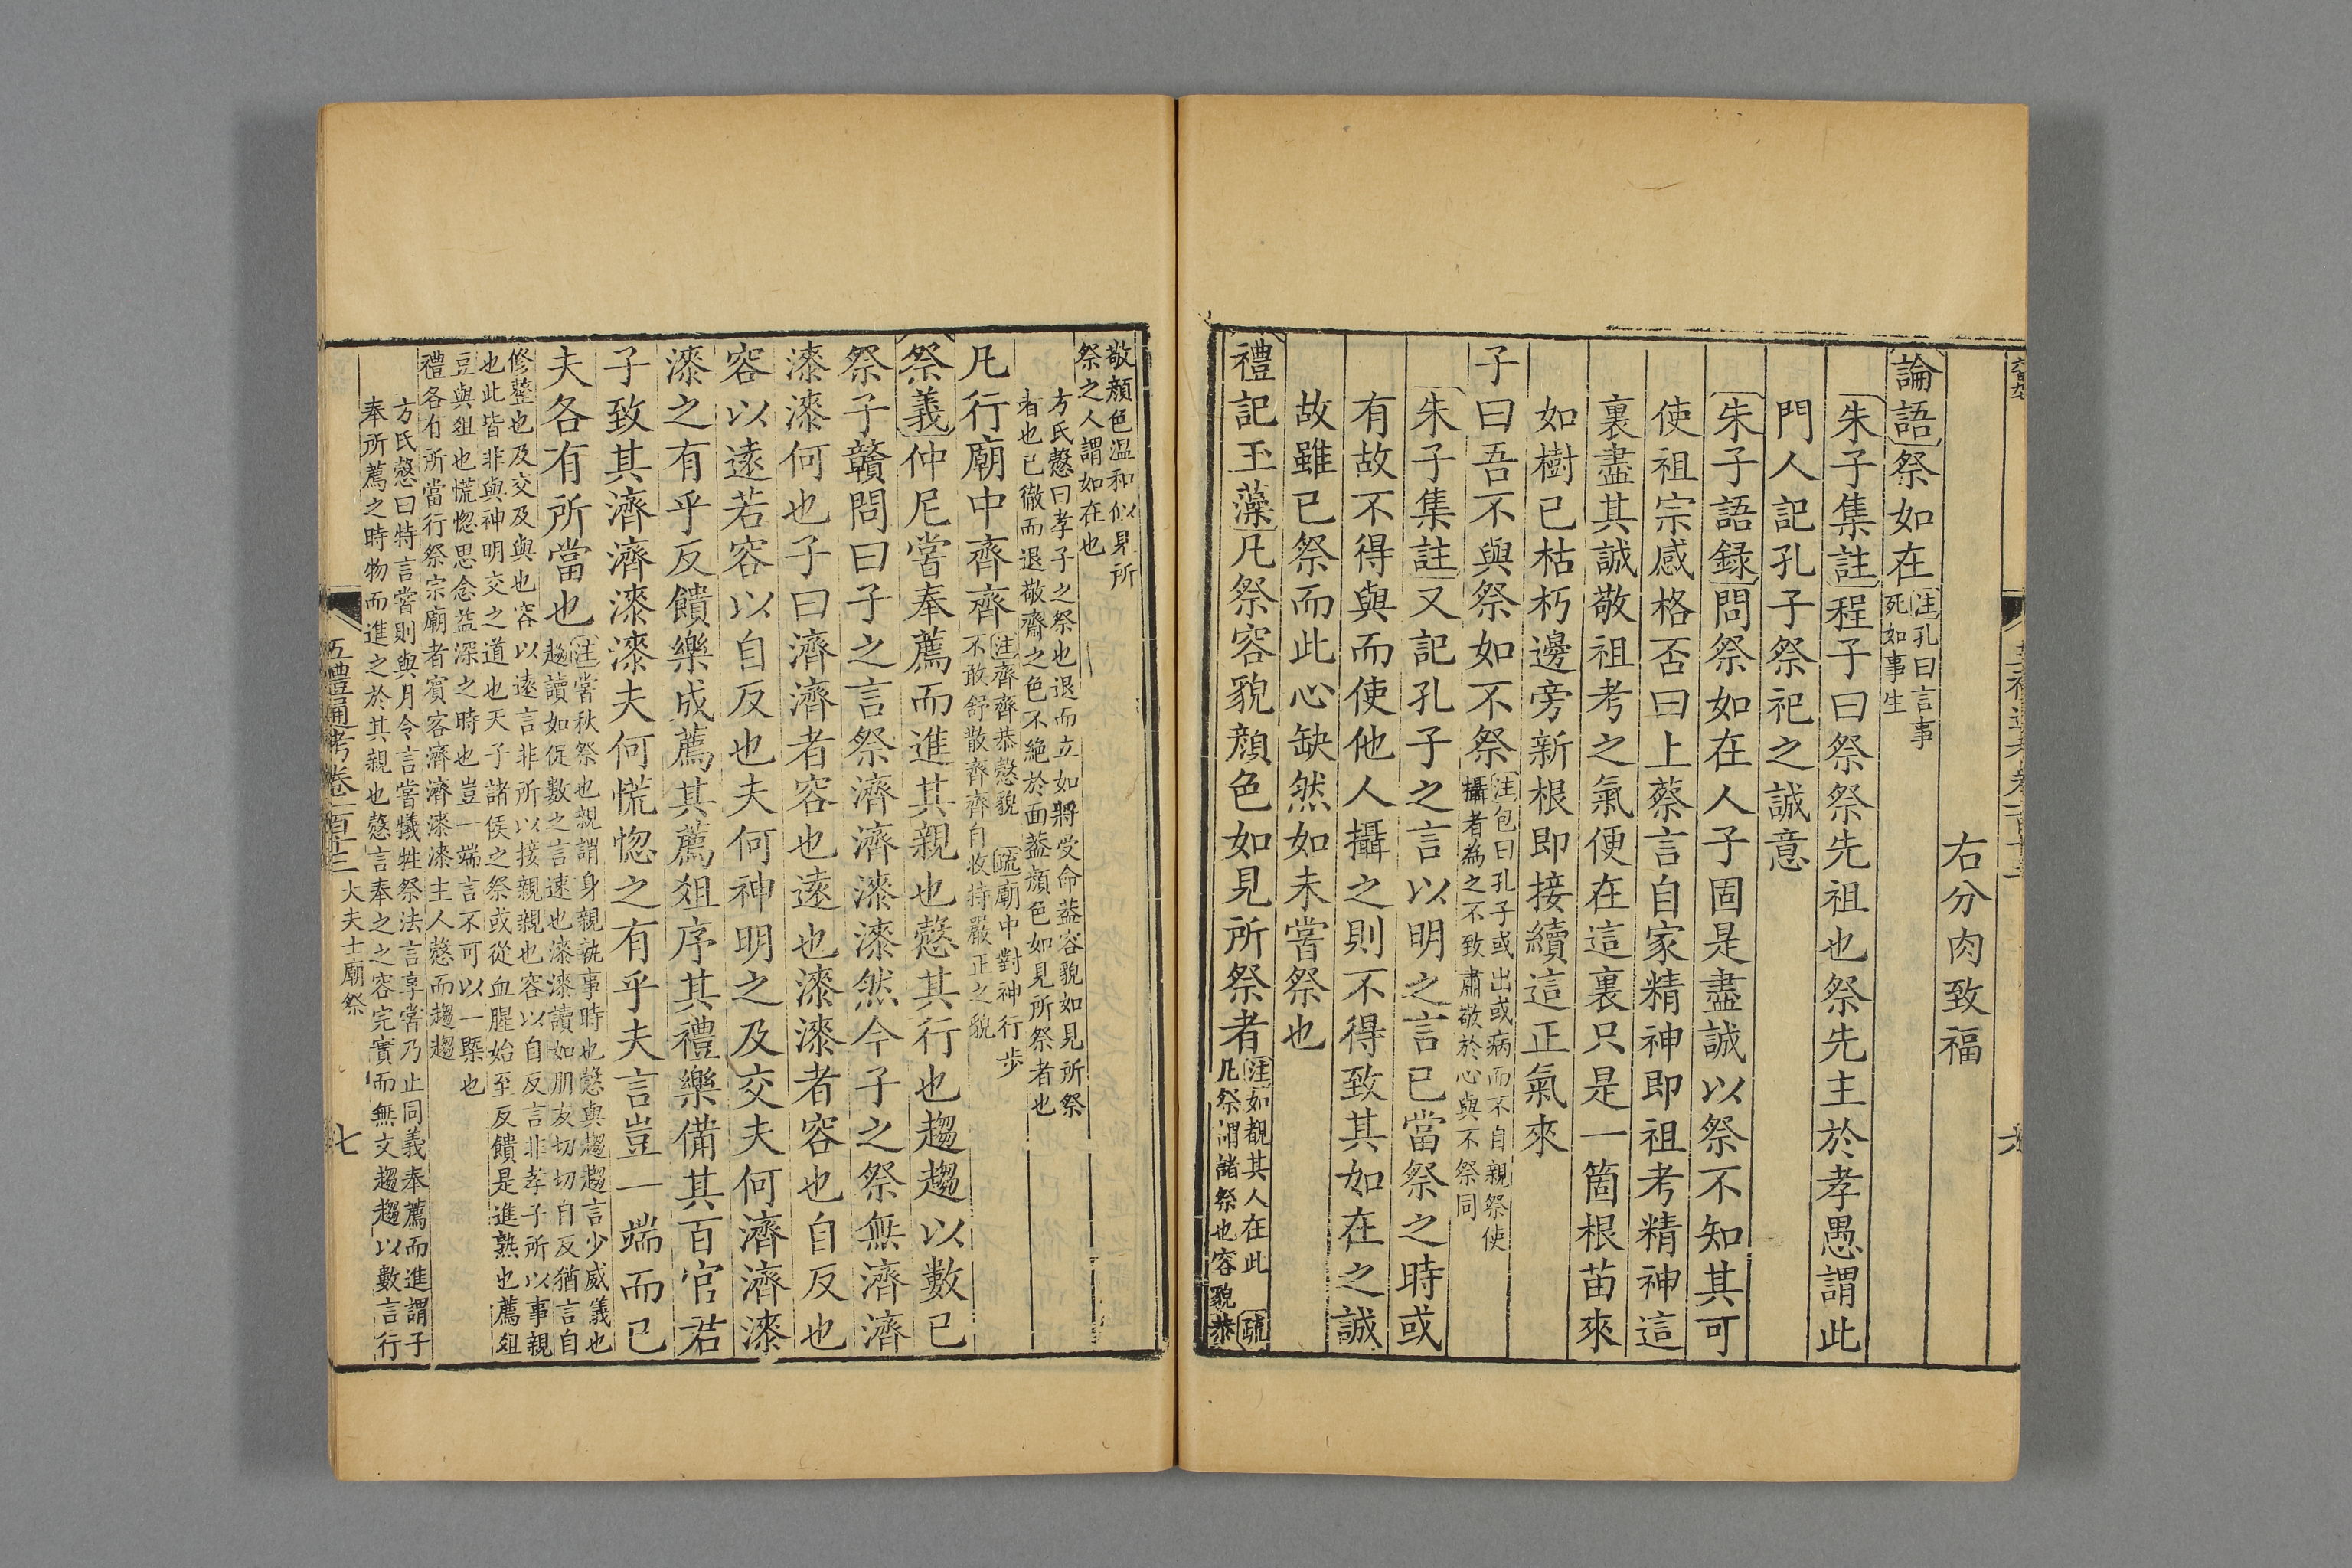 右分肉致福
論語祭如在注孔曰言事
死如事生
朱子集註程子曰祭祭先祖也祭先主於孝愚謂此
門人記孔子祭祀之誠意
朱子語録問祭如在人子固是盡誠以祭不知其可
使祖宗感格否曰上蔡言自家精神即祖考精神這
裏盡其誠敬祖考之氣便在這裏只是一箇根苗來
如樹已枯朽邊旁新根即接續這正氣來
子曰吾不與祭如不祭注包曰孔子或出或病而不自親祭使
攝者為之不致肅敬於心與不祭同
朱子集註又記孔子之言以明之言已當祭之時或
有故不得與而使他人攝之則不得致其如在之誠
故雖已祭而此心缺然如未嘗祭也
禮記玉藻凡祭容貌顔色如見所祭者注如覩其人在此 疏
凡祭謂諸祭也容貌恭
敬顔色温和似見所
祭之人謂如在也
方氏慤曰孝子之祭也退而立如將受命葢容貌如見所祭
者也已徹而退敬齊之色不絶於面葢顔色如見所祭者也
凡行廟中齊齊注齊齊恭慤貌 疏廟中對神行步
不敢舒散齊齊自收持嚴正之貌
祭義仲尼嘗奉薦而進其親也慤其行也趨趨以數已
祭子贛問曰子之言祭濟濟漆漆然今子之祭無濟濟
漆漆何也子曰濟濟者容也遠也漆漆者容也自反也
容以遠若容以自反也夫何神明之及交夫何濟濟漆
漆之有乎反饋樂成薦其薦俎序其禮樂備其百官君
子致其濟濟漆漆夫何慌惚之有乎夫言豈一端而已
夫各有所當也注嘗秋祭也親謂身親執事時也慤與趨趨言少威儀也
趨讀如促數之言速也漆漆讀如朋友切切自反猶言自
修整也及交及與也容以遠言非所以接親親也容以自反言非孝子所以事親
也此皆非與神明交之道也天子諸侯之祭或從血腥始至反饋是進熟也薦俎
豆與俎也慌惚思念益深之時也豈一端言不可以一槩也
禮各有所當行祭宗廟者賓客濟濟漆漆主人慤而趨趨
方氏慤曰特言嘗則與月令言嘗犧牲祭法言享嘗乃止同義奉薦而進謂子
奉所薦之時物而進之於其親也慤言奉之之容完實而無文趨趨以數言行
五禮通考卷一百十三 大夫士廟祭 七